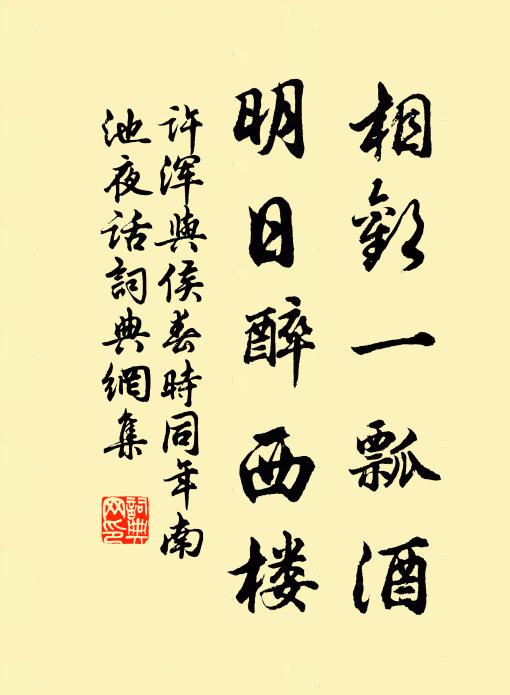 相歡一瓢酒
明日醉西楼
許浑與侯春時同年南
池夜話詞典網集
詞典
网印